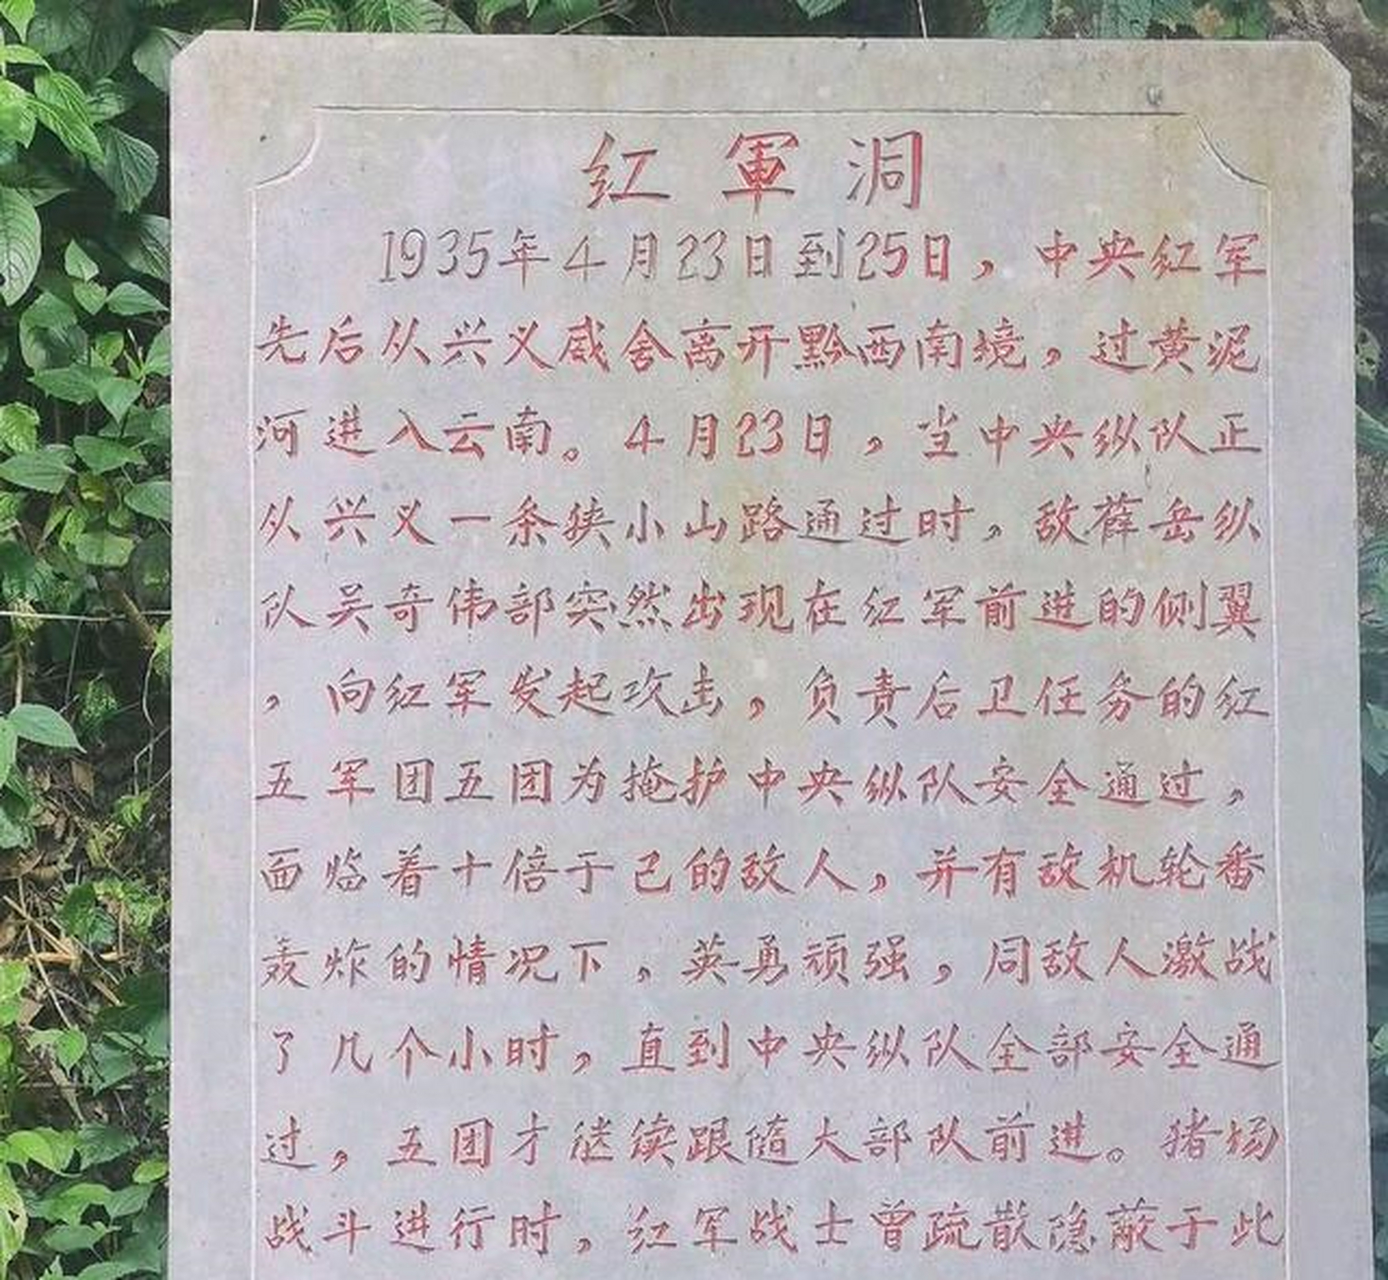 红軍洞
1935年4月23日到25日，中央红军
先后从兴义威舍离开黔西南境，过黄泥
河进入云南。4月23日，当中央纵队正
从兴义一条狭小山路通过时，敌薛岳纵
队吴奇伟部突然出现在红军前进的侧翼
，向红军发起攻击，负责后卫任务的红
五军团五团为掩护中央纵队安全通过，
面临着十倍于己的敌人，并有敌机轮番
轰炸的情况下，英勇顽强，同敌人激战
了几个小时，直到中央纵队全部安全通
过，五团才继续跟随大部队前进。猪场
战斗进行时，红军战士曾疏散隐蔽于此